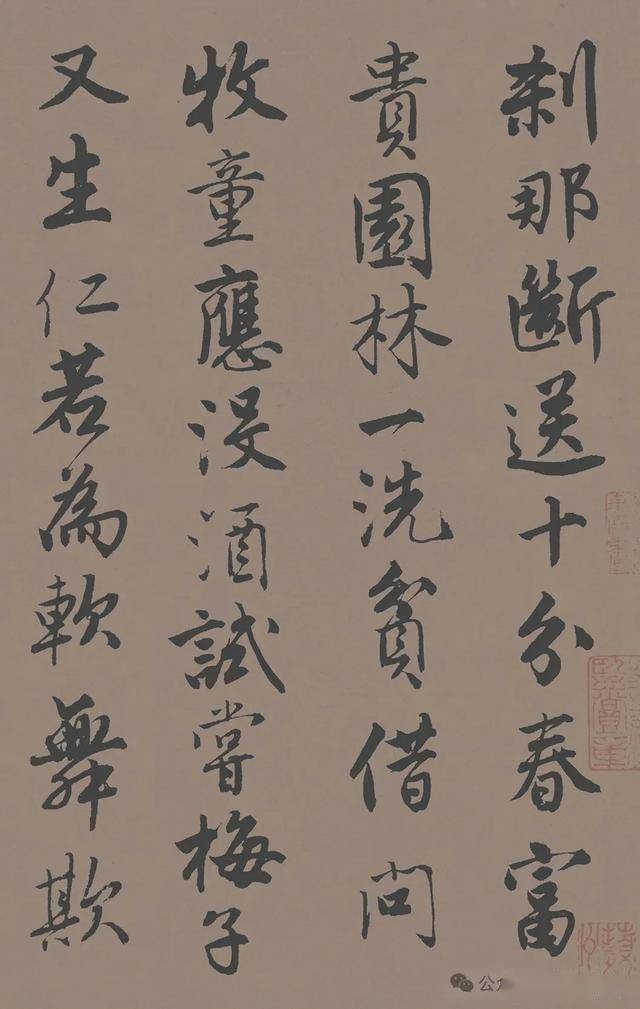 剎那斷送十分春富
貴園林一洗貧借問
牧童應沒酒試嘗梅子
又生仁若為軟舞欺
公